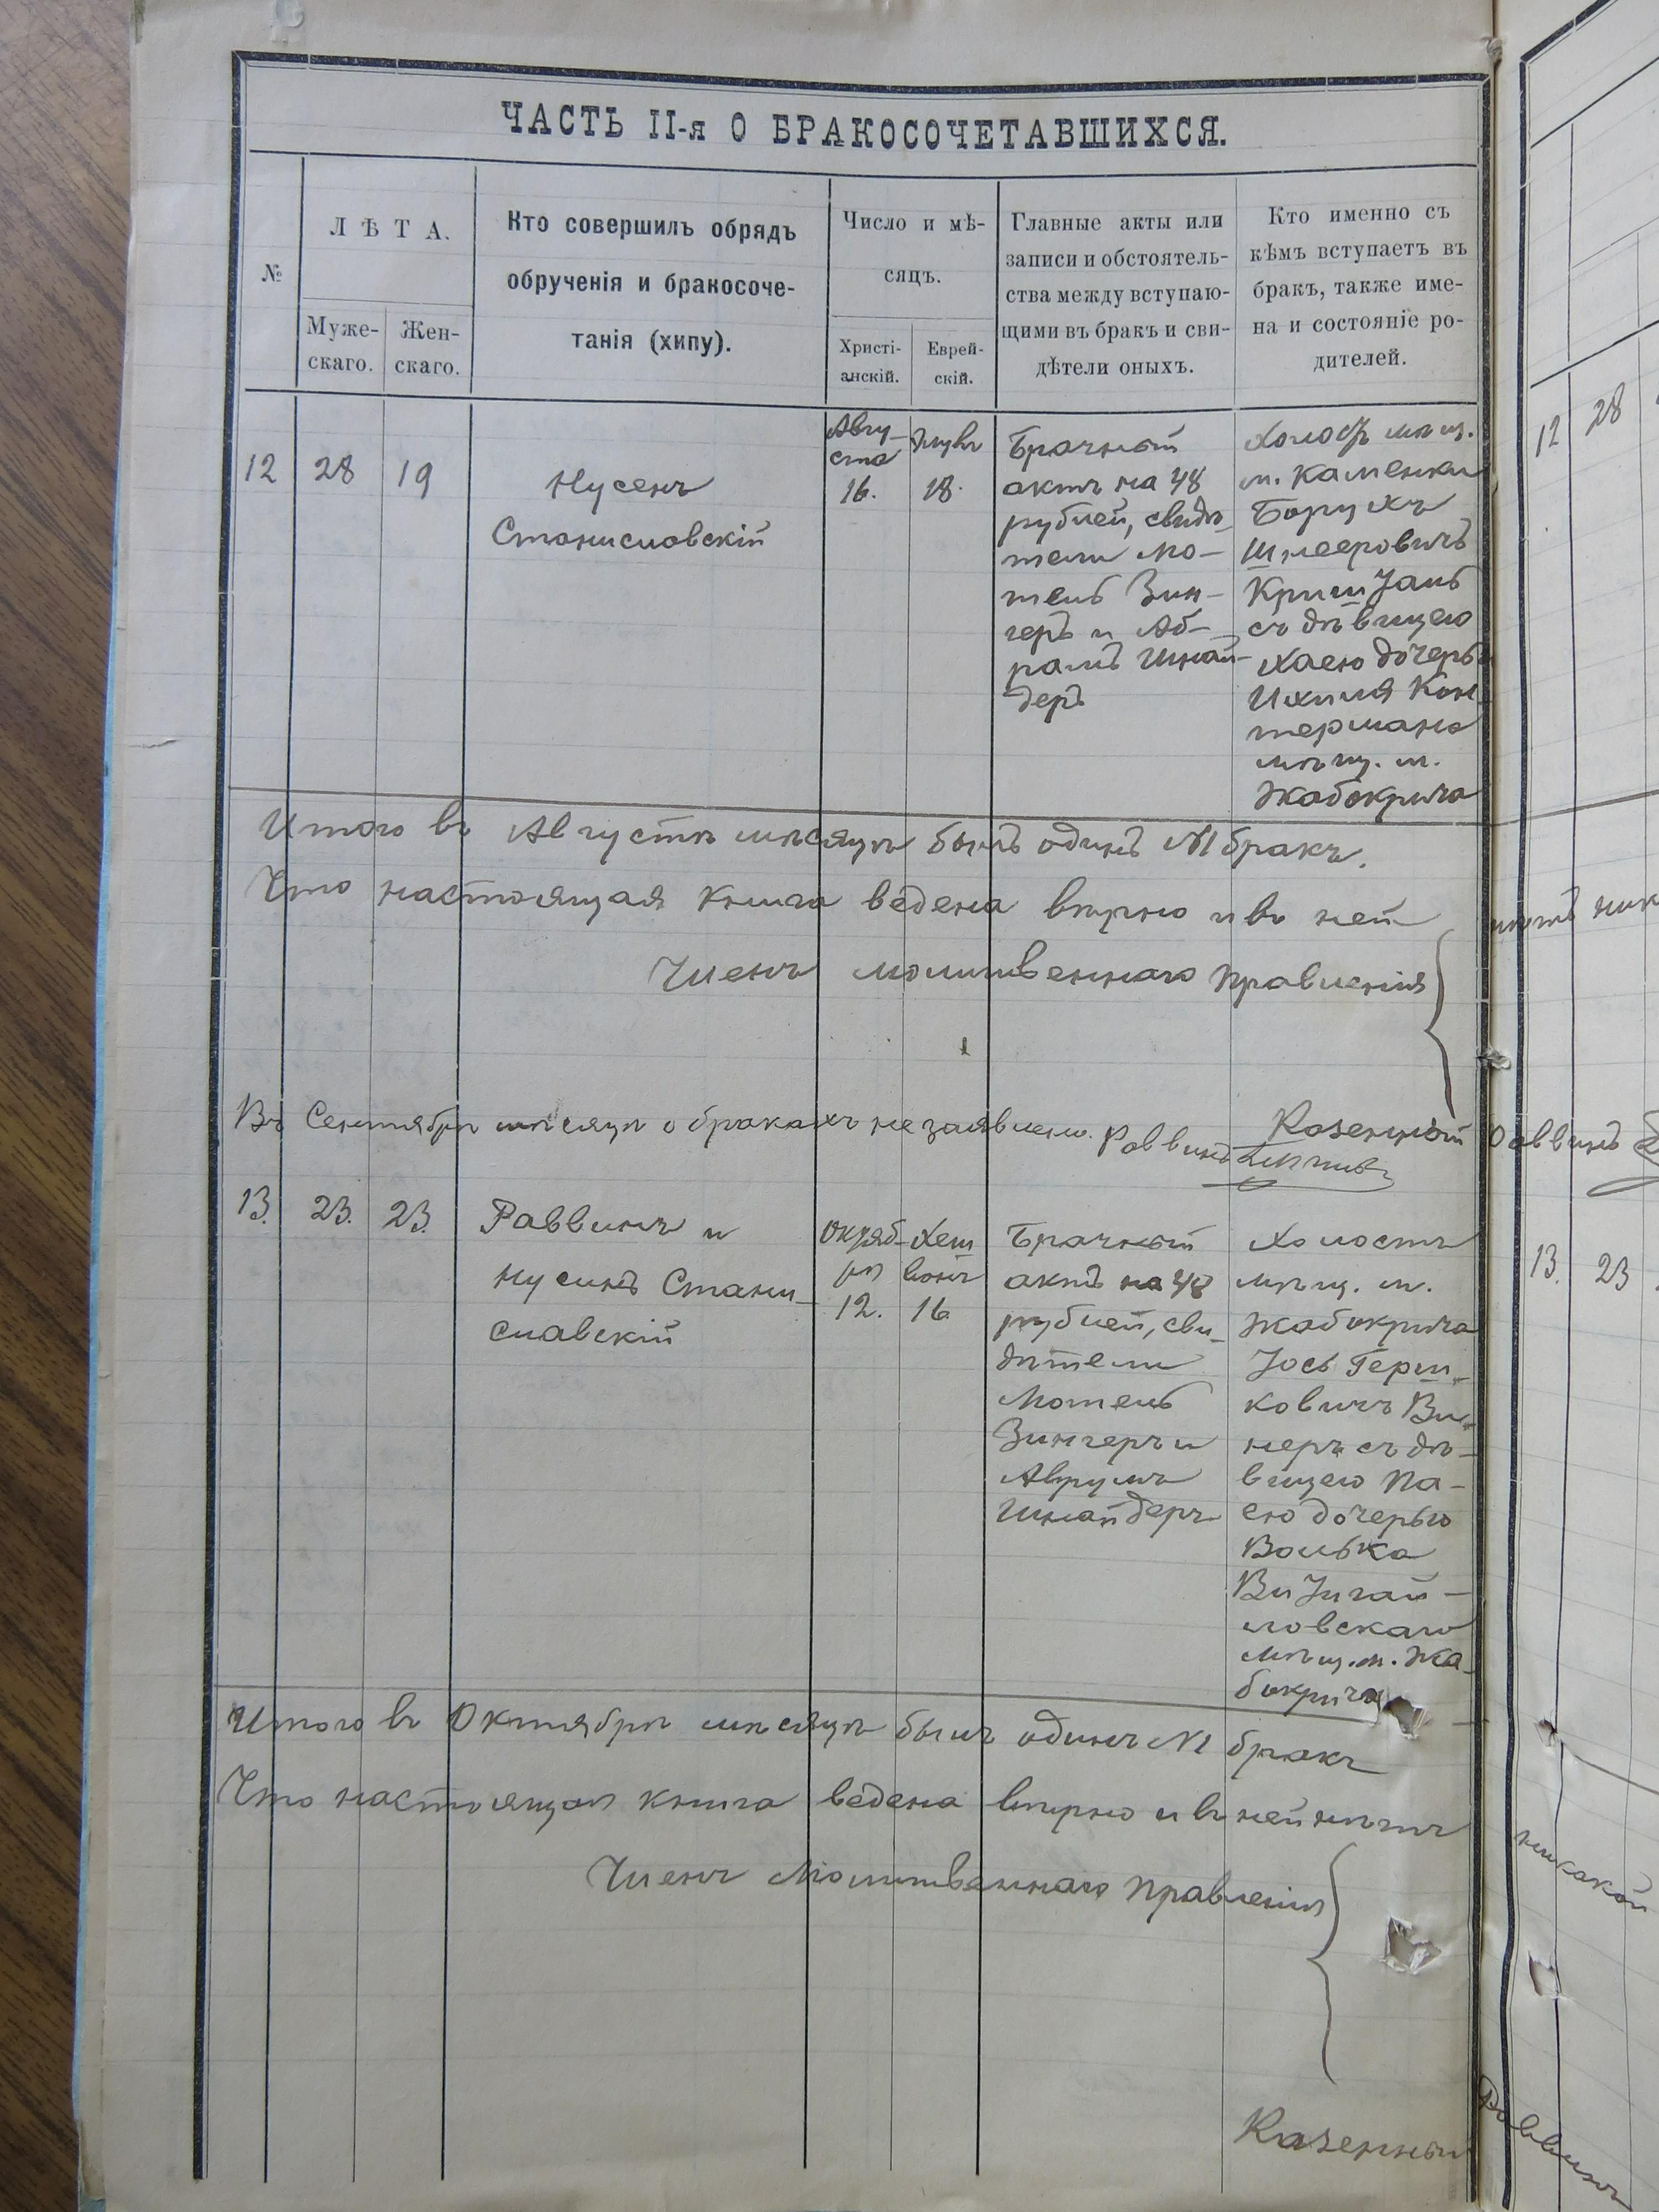 ЧАСТЬ II-я О БРАКОСОЧЕТАВШИХСЯ.
№
ЛѢТА.
Муже-
скаго.
Жен-
скаго.
Кто совершилъ обрядъ
обрученія и бракосоче-
танія (хипу).
Число и мѣ-
сяцъ.
Христі-
анскій.
Еврей-
скій.
Главные акты или
записи и обстоятель-
ства между вступаю-
щими въ бракъ и сви-
дѣтели оныхъ.
Кто именно съ
кѣмъ вступаетъ въ
бракъ, также име-
на и состояніе ро-
дителей.
12
28
19
Нусенъ
Станиславскій
Авгу-
ста
16.
18.
Брачный
актъ на 48
рублей, свидѣ-
тели Мо-
тель Зин-
геръ и Аб-
рамъ Шнай-
деръ
Холост мѣщ.
м. Каменки
Борухъ
Шмееровичъ
съ дѣвицею
Хаею дочерью
Ихиля Кон-
термана
мѣщ. м.
Жабокрича
Итого въ Августѣ мѣсяцѣ былъ одинъ №1 бракъ.
Что настоящая книга ведена вѣрно и въ ней
Членъ молитвеннаго правленія
Въ Сентябрѣ мѣсяцѣ о бракахъ не заявлено. Раввинъ
Казенный
13.
23.
23.
Раввинъ и
Нусинъ Стани-
славскій
Октяб-
рѣ
12.
Хеш
вонъ
16
Брачный
актъ на 48
рублей, сви-
дѣтели
Мотель
Зингеръ и
Аврумъ
Шнайдеръ
Холостъ
мѣщ. м.
Жабокрича
Іось Герш-
ковичъ Ви-
неръ съ дѣ-
вицею Па-
ею дочерью
Волька
ловскаго
мѣщ. м. Жа-
бокрича
Итого въ Октябрѣ мѣсяцѣ былъ одинъ №1 бракъ
Что настоящая книга ведена вѣрно и въ ней нѣтъ
Членъ Молитвеннаго правленія
Казенный
12
28
Раввинъ
13.
23
никакой
Раввинъ